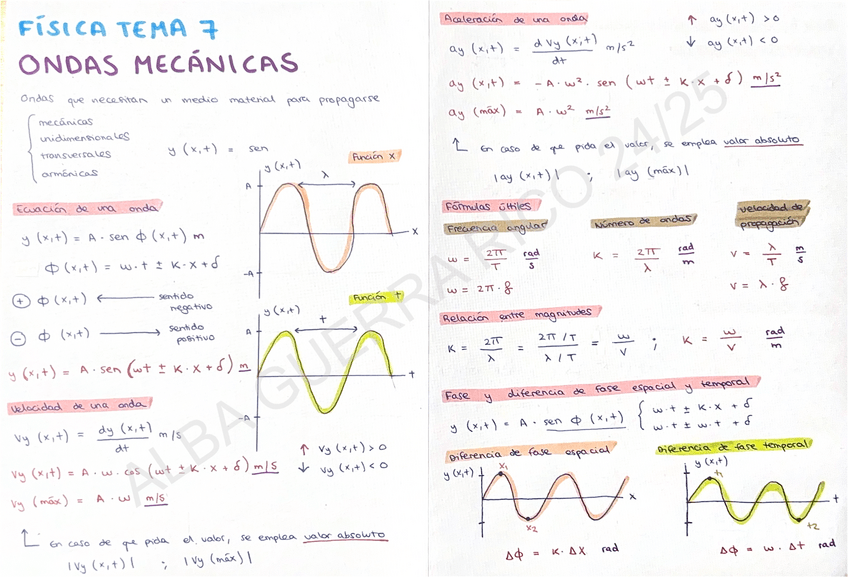 FÍSICA TEMA 7
ONDAS MECÁNICAS
Ondas que necesitan un medio material para propagarse
mecánicas
unidimensionales
transversales
armónicas
y (x,t) = sen
Función x
y (x,t)
λ
A
-A
x
Ecuación de una onda
y (x,t) = A · sen ϕ (x,t) m
ϕ (x,t) = w · t ± K · X + δ
+ ϕ (x,t) ← sentido negativo
- ϕ (x,t) → sentido positivo
y (x,t) = A · sen (wt ± K · X + δ) m
Función t
y (x,t)
t
A
-A
t
Velocidad de una onda
Vy (x,t) = dy (x,t) / dt m/s
Vy (x,t) = A · w · cos (wt ± K · X + δ) m/s
↑ Vy (x,t) > 0
↓ Vy (x,t) < 0
Vy (máx) = A · w m/s
En caso de que pida el valor, se emplea valor absoluto
|Vy (x,t)| ; |Vy (máx)|
Aceleración de una onda
↑ ay (x,t) > 0
↓ ay (x,t) < 0
ay (x,t) = d Vy (x,t) / dt m/s²
ay (x,t) = - A · w² · sen (wt ± K · X + δ) m/s²
ay (máx) = A · w² m/s²
En caso de que pida el valor, se emplea valor absoluto
|ay (x,t)| ; |ay (máx)|
Fórmulas útiles
Frecuencia angular
w = 2π / T rad / s
w = 2π · f
Número de ondas
K = 2π / λ rad / m
Velocidad de propagación
V = λ / T m / s
V = λ · f
Relación entre magnitudes
K = 2π / λ = 2π / T / λ / T = w / V ; K = w / V rad / m
Fase y diferencia de fase espacial y temporal
y (x,t) = A · sen ϕ (x,t) { w · t ± K · X + δ
w · t ± w · t + δ
Diferencia de fase espacial
y (x,t)
x1
x2
x
Δϕ = K · ΔX rad
Diferencia de fase temporal
y (x,t)
t1
t2
t
Δϕ = w · Δt rad
ALBA GUERRA RICO 24/25